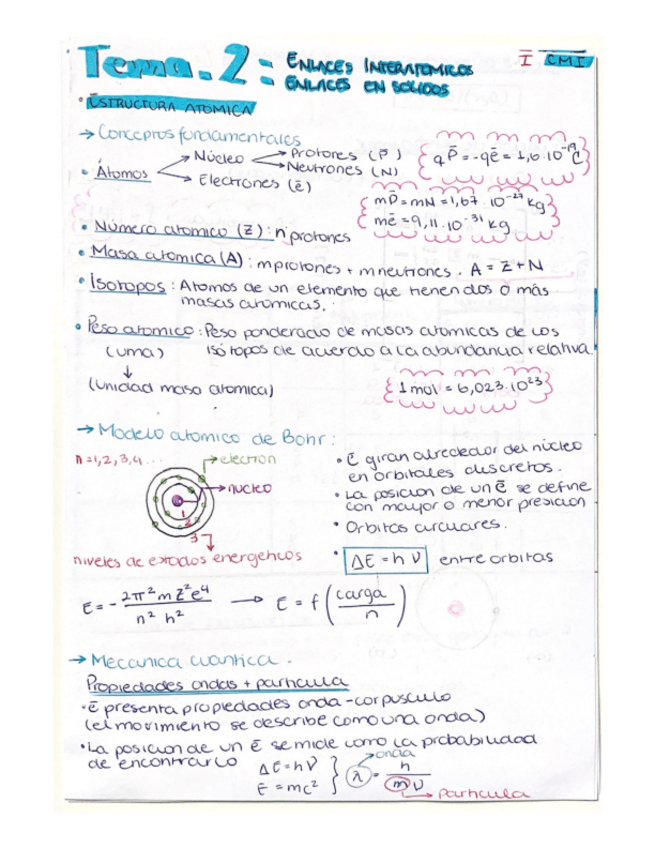 Tema. 2: ENLACES INTERATOMICOS
ENLACES EN SOLIDOS
I CMI
• ESTRUCTURA ATOMICA
→ Conceptos fundamentales
• Átomos
Núcleo
Protones (P̄)
Neutrones (N)
Electrones (ē)
qP̄ = -qē = 1,6·10⁻¹⁹C
mP̄ = mN = 1,67·10⁻²⁷ kg
mē = 9,11·10⁻³¹ kg
• Número atomico (Z): nº protones
• Masa atomica (A): mprotones + mneutrones. A = Z + N
• Isotopos: Atomos de un elemento que tienen dos o más
masas atomicas.
• Peso atomico: Peso ponderado de masas atomicas de los
(uma) isótopos de acuerdo a la abundancia relativa
↓
(unidad masa atomica)
1 mol = 6,023·10²³
→ Modelo atomico de Bohr:
n=1,2,3,4...
electron
nucleo
1
2
3
niveles de estados energeticos
• ē giran alrededor del núcleo
en orbitales discretos.
• La posicion de un ē se define
con mayor o menor presicion
• Orbitas circulares.
• ΔE = h ν entre orbitas
E = - 2π²mZ²e⁴ / n² h² → E = f (carga / n)
→ Mecanica cuantica.
Propiedades ondas + particula
• ē presenta propiedades onda-corpusculo
(el movimiento se describe como una onda)
• La posicion de un ē se mide como la probabilidad
de encontrarlo
ΔE = hν
E = mc²
onda
λ = h / mν
particula